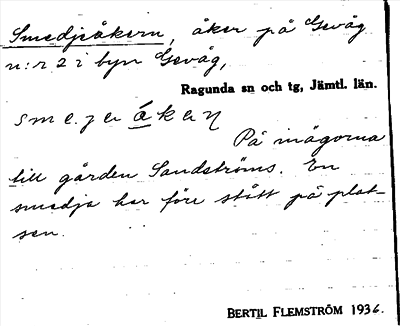 Smedjeåkern, åker på Gevåg
n:r 2 i byn Gevåg,
Ragunda sn och tg, Jämtl. län.
På inägorna
till gården Sandströms. En
smedja har före stått på plat-
sen.
BERTIL FLEMSTRÖM 1936.